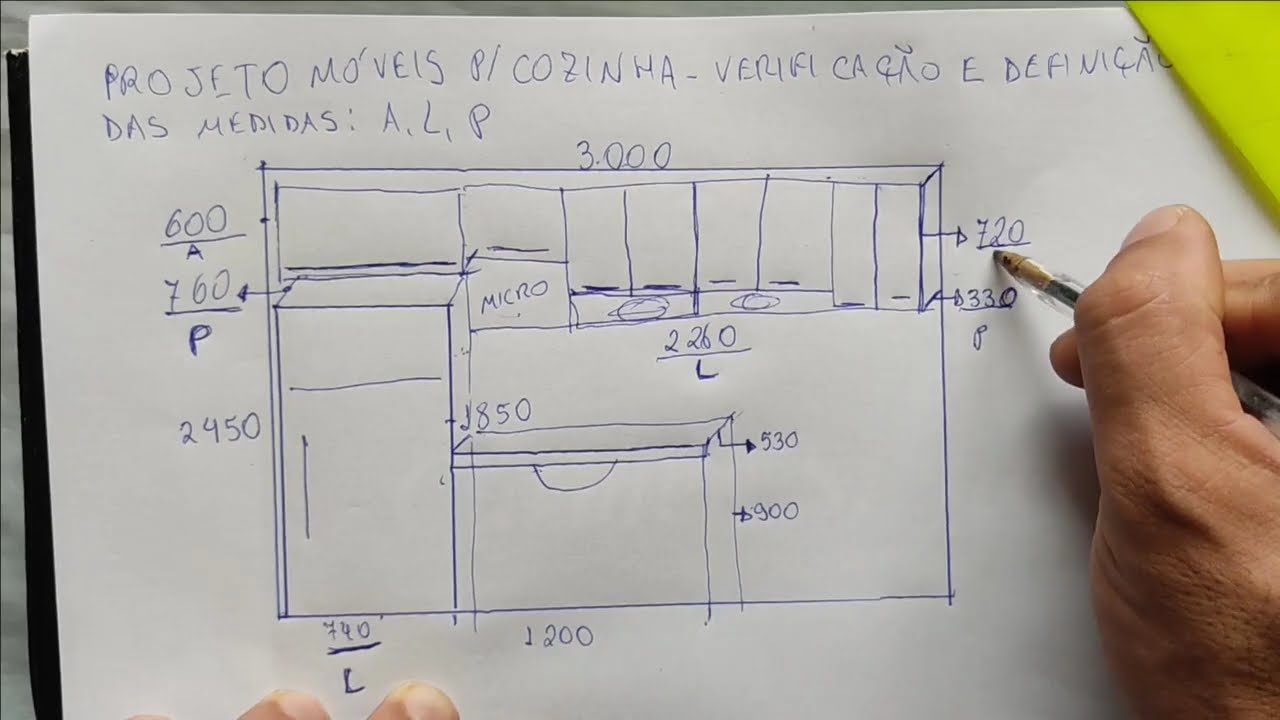 PROJETO MÓVEIS P/ COZINHA - VERIFICAÇÃO E DEFINIÇÃO
DAS MEDIDAS: A, L, P
3.000
600
A
720
760
P
MICRO
330
P
2260
L
2450
1850
530
900
740
L
1200